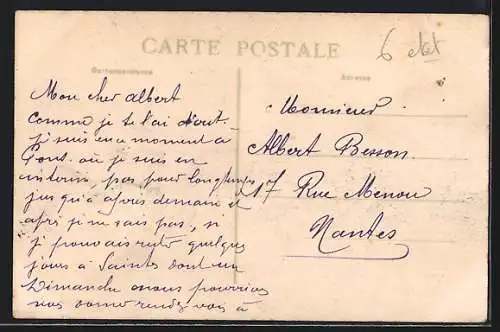 CARTE POSTALE
Correspondance
Adresse
6
Mon cher Albert
Comme je te l'ai dit
je suis en ce moment à
Pons. où je suis en
pas pour longtemps
jusqu'à après demain et
après je ne sais pas, si
je pouvais rester quelques
jours à Saintes dont un
Dimanche nous pourrions
nous donner rendez vous à
Monsieur
Albert Besson
17 Rue Menou
Nantes